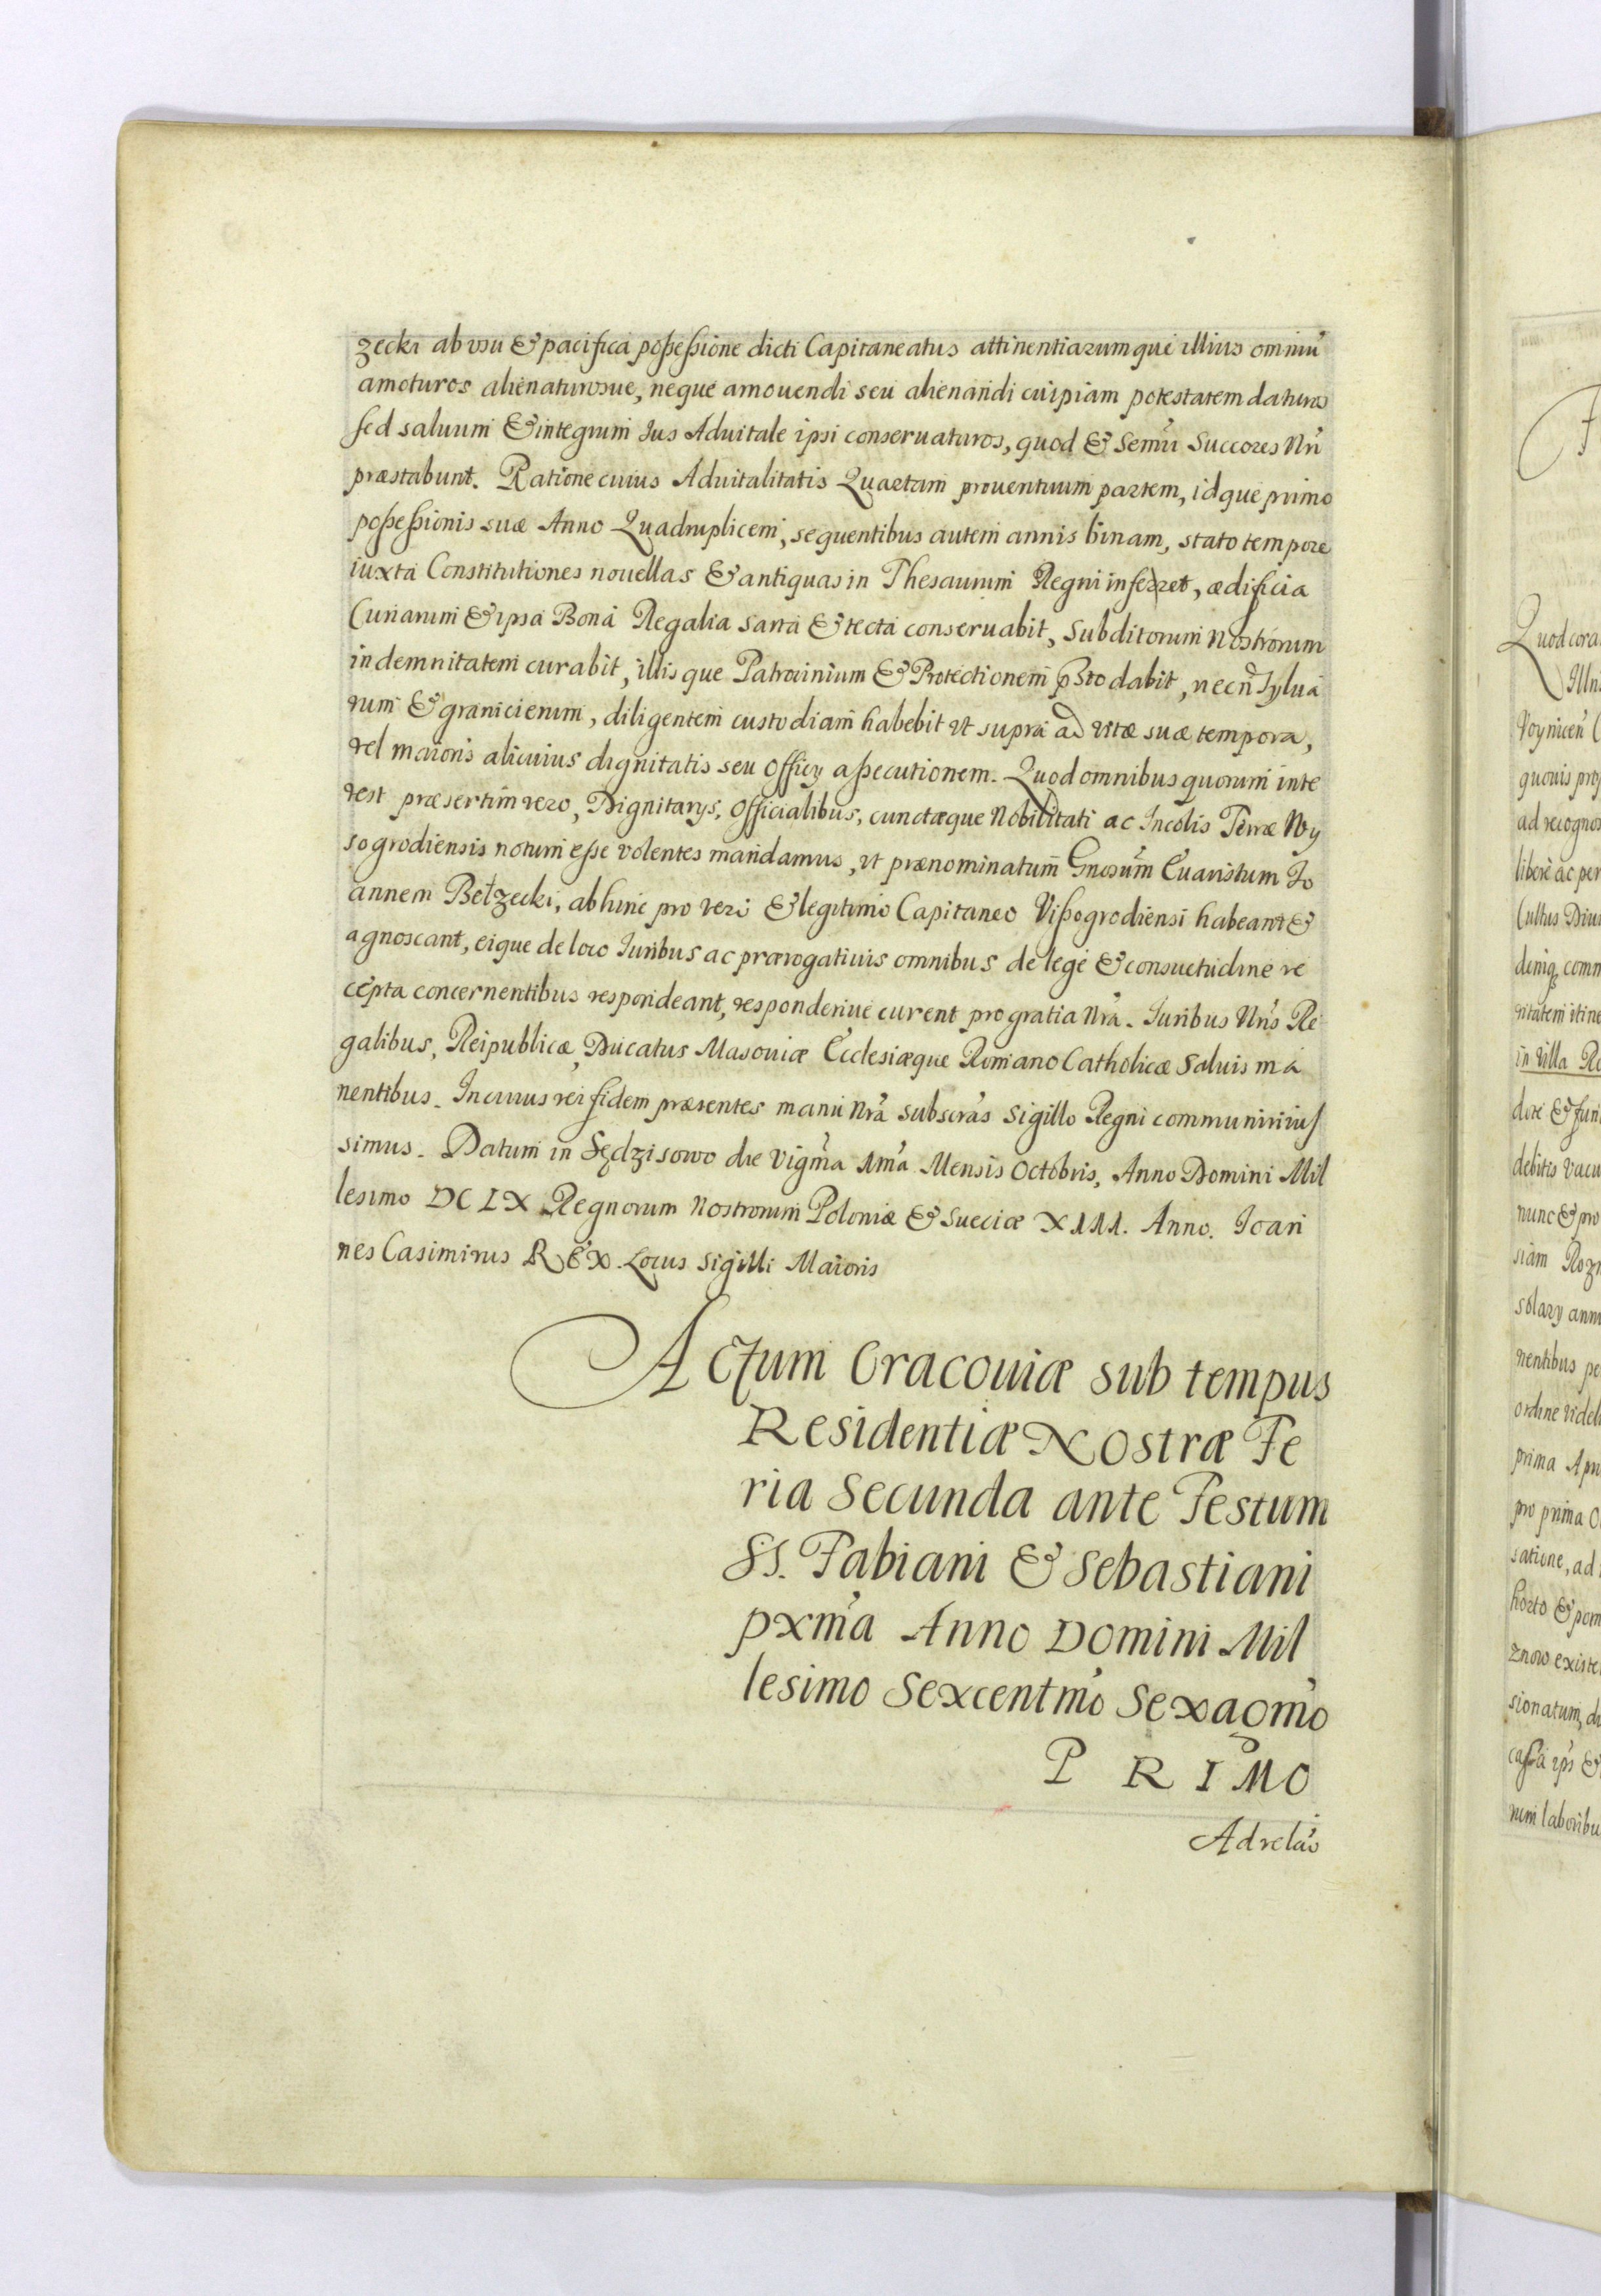 zecki ab usu & pacifica poßeßione dicti Capitaneatus attinentiarumque illius omniu
amoturos alienaturosue, neque amouendi seu alienandi cuipiam potestatem daturos
sed saluum & integrum Ius Aduitale ipsi conseruaturos, quod & Semũ Succores Nrĩ
præstabunt. Ratione cuius Aduitalitatis Quartam prouentuum partem, idque primo
poßeßionis suæ Anno Quadruplicem, sequentibus autem annis binam, stato tempore
iuxta Constitutiones nouellas & antiquas in Thesaurum Regni inferret, ædificia
Curiarum & ipsa Bona Regalia sarta & tecta conseruabit, Subditorum Nostrorum
indemnitatem curabit, illisque Patrocinium & Protectionem pSto dabit, necñ Sylua
rum & granicierum, diligentem custodiam habebit ut supra ad vitæ suæ tempora,
vel maioris alicuius dignitatis seu officy aßecutionem. Quod omnibus quorum inte
rest præsertim vero, Dignitarys, Officialibus, cunctæque Nobilitati ac Incolis Terræ Wy
sogrodiensis notum eße volentes mandamus, ut prænominatum Gnosum Euaristum Jo
annem Bełzecki, abhinc pro vero & legitimo Capitaneo Vißogrodiensi habeant &
agnoscant, eique de loco Iuribus ac prærogatiuis omnibus de lege & consuetudine re
cepta concernentibus respondeant, responderiue curent pro gratia Nra. Iuribus Nris Re
galibus, Reipublicæ, Ducatus Masouiæ Ecclesiæque Romano Catholicæ Saluis ma
nentibus. In cuius rei fidem præsentes manu Nra subscras Sigillo Regni communiriius
simus. Datum in Sędziszowo die Vigma 1ma Mensis Octobris, Anno Domini Mil
lesimo DC IX Regnorum Nostrorum Poloniæ & Sueciæ XIII. Anno. Ioan
nes Casimirus REX. Locus Sigilli Maioris
Actum Cracouiæ sub tempus
Residentiæ Nostræ Fe
ria Secunda ante Festum
SS. Fabiani & Sebastiani
pxma Anno Domini Mil
lesimo Sexcentmo Sexagmo
PRIMO
Ad relao
Quod cora
Illus
Voynicen C
quouis pro
ad recogno
libere ac per
Cultus Diui
deniq comm
in Villa Ro
debitis vacu
nunc & pro
siam Rozn
solary annu
nentibus pe
ordine videl
prima Apri
pro prima O
satione, ad
horto & pom
znow existe
sionatum, du
rum laboribu